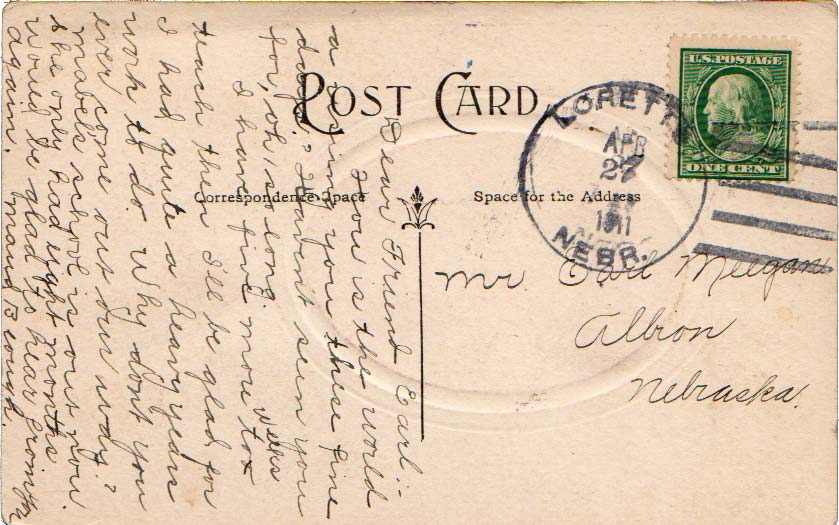 POST CARD
Correspondence Space
Space for the Address
U.S. POSTAGE
ONE CENT
LORETTO
APR
27
1911
NEBR.
Mr. Earl Meegan
Albion
Nebraska.
Dear Friend Earl:-
How is the world
a using you these fine
days? Haven't seen you
for, oh, so long.
I have five more weeks to
teach then I'll be glad for
I had quite a heavy year
work to do. Why don't you
ever come out our way?
Mabels school is out now.
She only had eight months
would be glad to hear from you
again. Maud